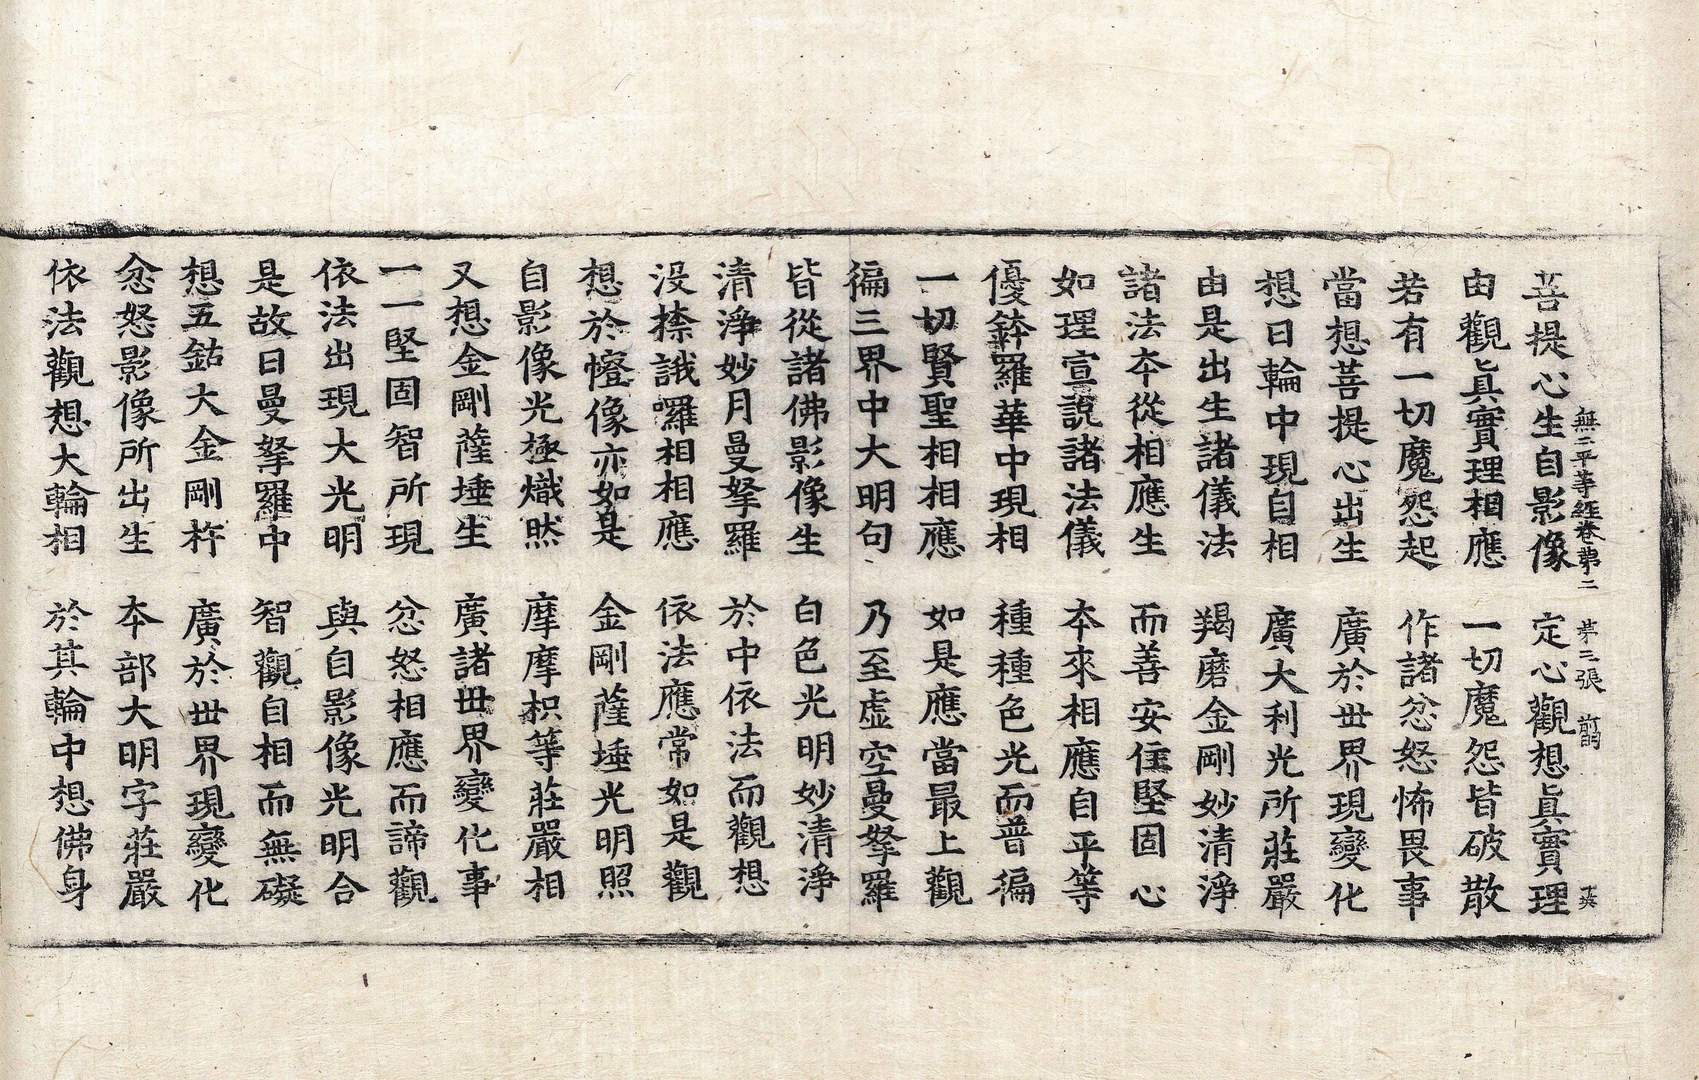 菩提心生自影像 定心觀想眞實理
無二平等經卷第二 第三張 㔟 英
由觀眞實理相應 一切魔怨皆破散
若有一切魔怨起 作諸忿怒怖畏事
當想菩提心出生 廣於世界現變化
想日輪中現自相 廣大利光所莊嚴
由是出生諸儀法 羯磨金剛妙清淨
諸法本從相應生 而善安住堅固心
如理宣說諸法儀 本來相應自平等
優鉢羅華中現相 種種色光而普徧
一切賢聖相相應 如是應當最上觀
徧三界中大明句 乃至虛空曼拏羅
皆從諸佛影像生 白色光明妙清淨
清淨妙月曼拏羅 於中依法而觀想
没㮈誐囉相相應 依法應常如是觀
想於幖像亦如是 金剛薩埵光明照
自影像光極熾然 摩摩枳等莊嚴相
又想金剛薩埵生 廣諸世界變化事
一一堅固智所現 忿怒相應而諦觀
依法出現大光明 與自影像光明合
是故日曼拏羅中 智觀自相而無礙
想五鈷大金剛杵 廣於世界現變化
忿怒影像所出生 本部大明字莊嚴
依法觀想大輪相 於其輪中想佛身